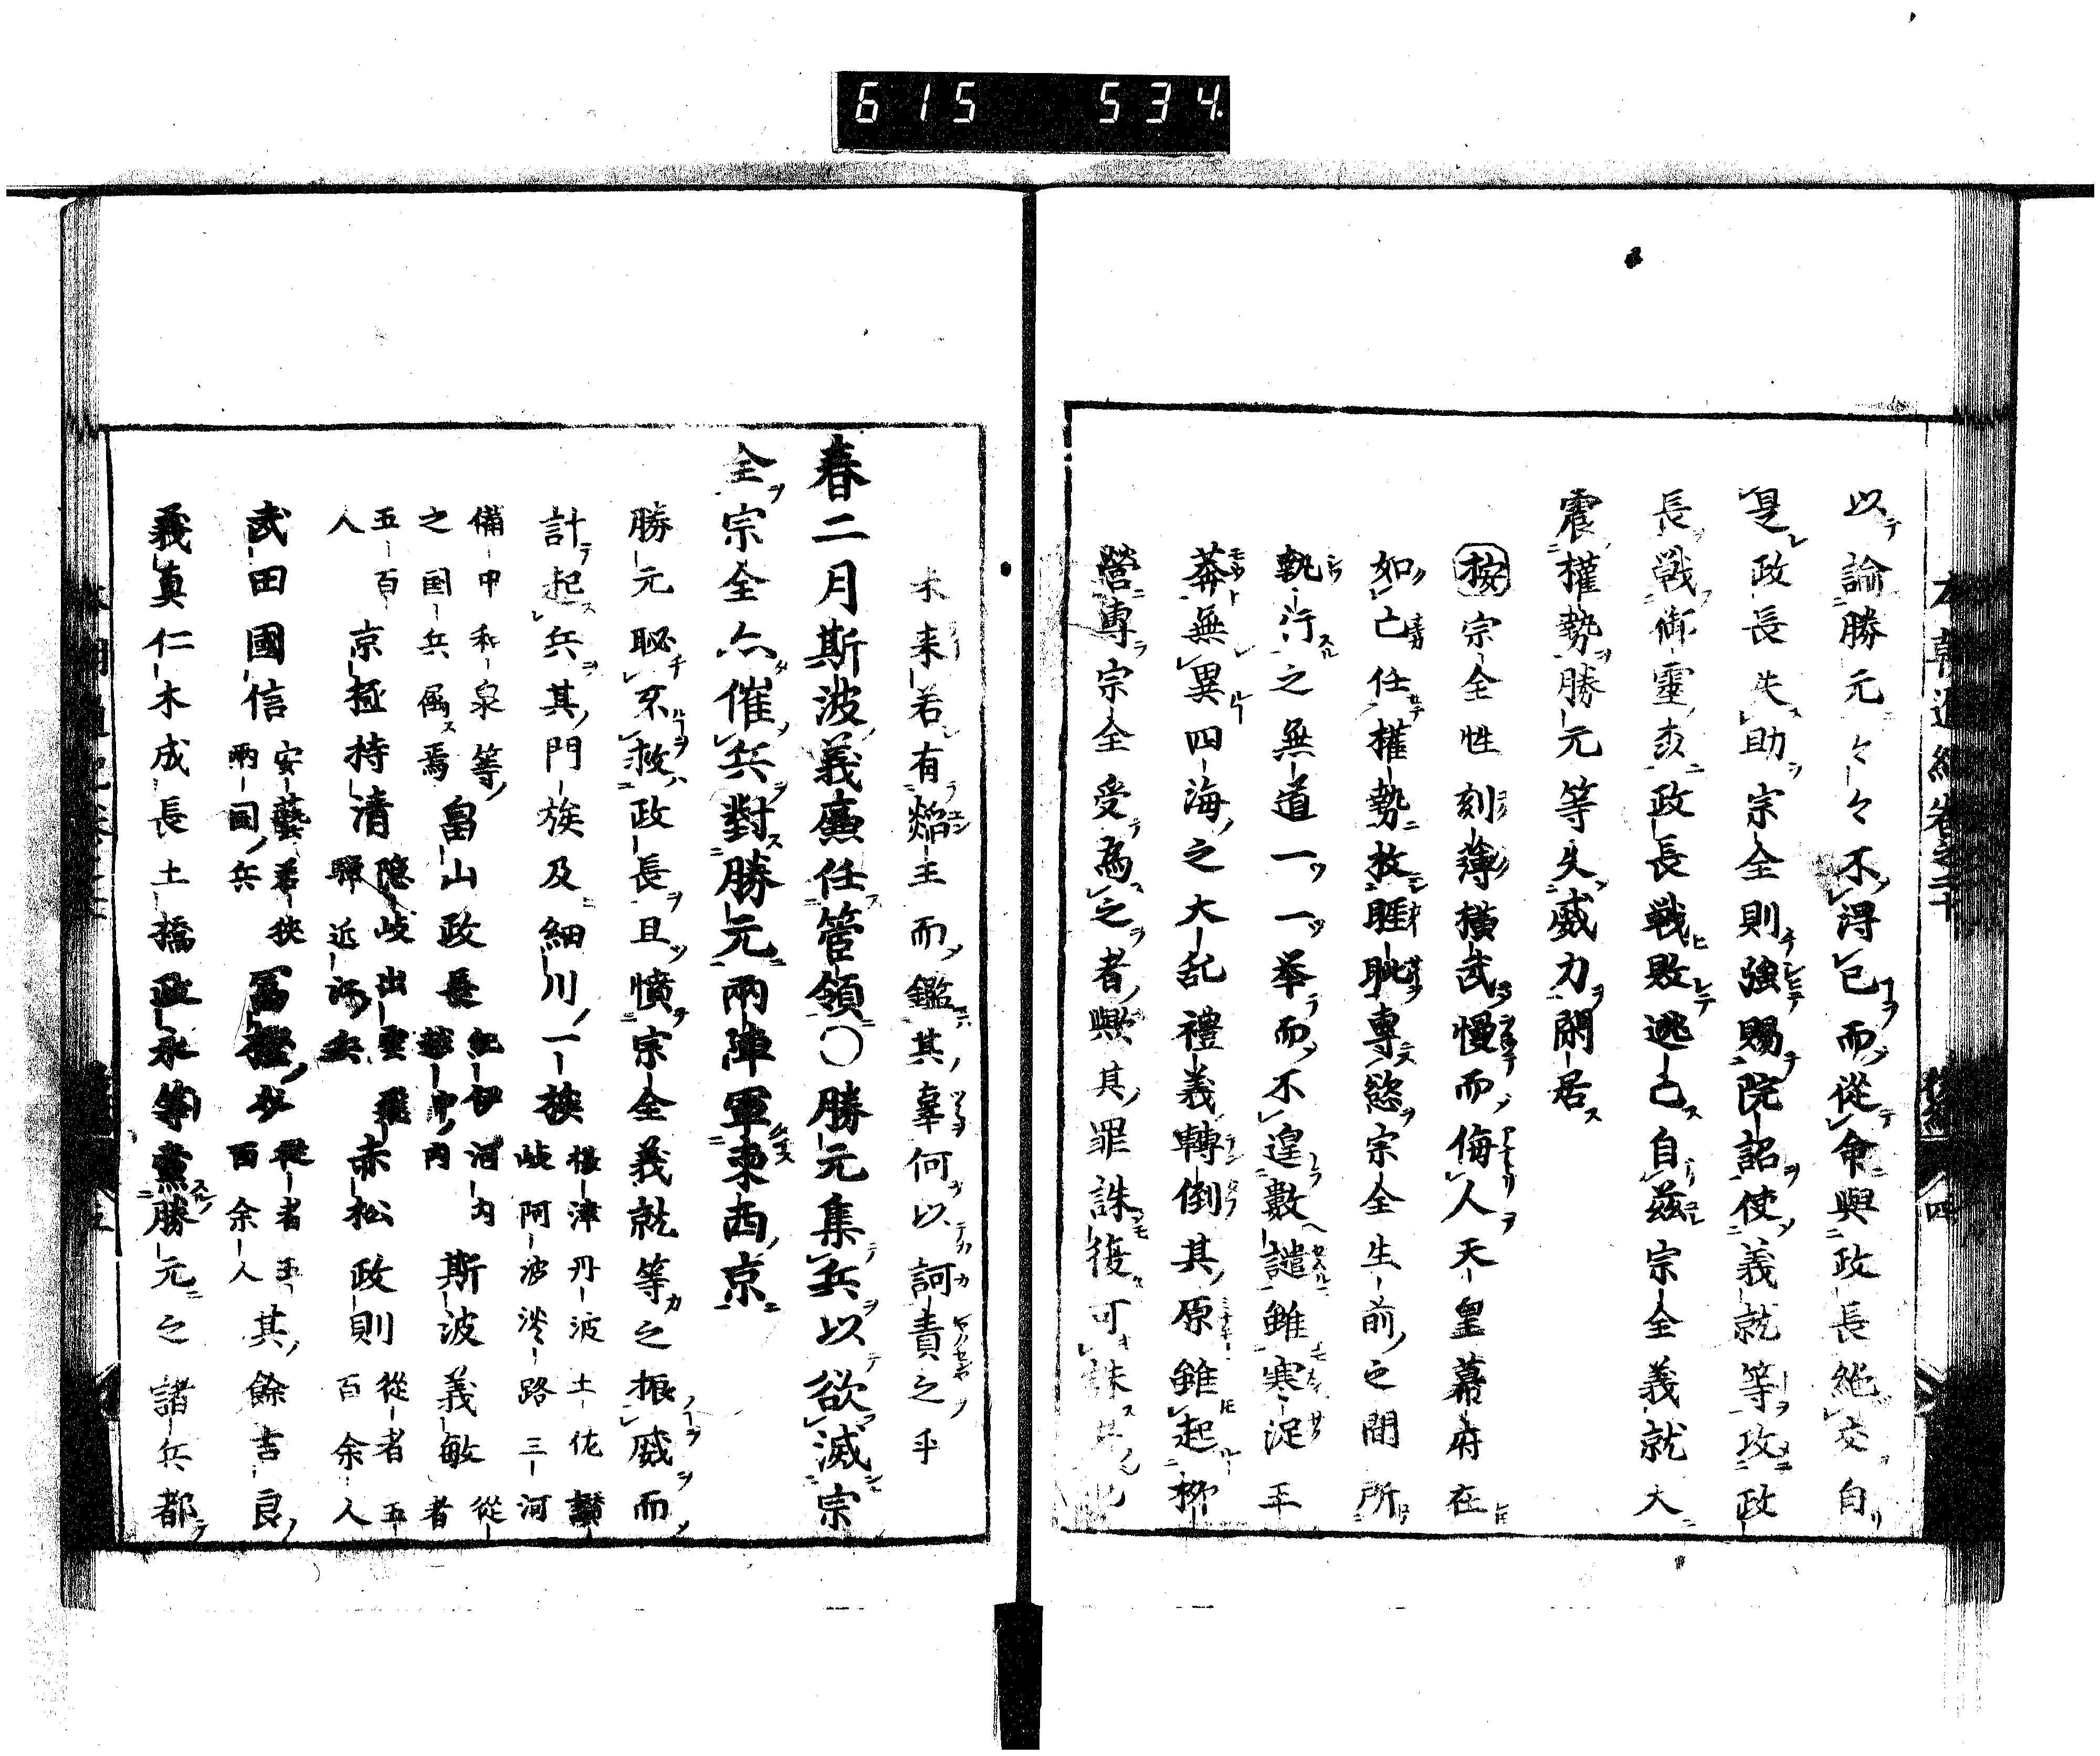 615 534
以論勝元々々不得已而從命與政長絶交自
是政長失助宗全則強賜院詔使義就等攻政
長戰御靈政長戰敗逃亡自兹宗全義就大
震權勢勝元等失威力閑居
按宗全性刻薄橫武慢而侮人天皇幕府在
如亡任權勢放睚眦專慾宗全生前之間所
執行之無道一一举而不遑數譴雖寒浞王
莽無異四海之大乱禮義轉倒其原雖起柳
營專宗全受爲之者歟其罪誅復可誅
未来若有燄王而鑑其辜何以訶責之乎
春二月斯波義廉任管領〇勝元集兵以欲滅宗
全宗全亦催兵對勝元兩陣軍東西京
勝元恥不救政長且憤宗全義就等之振威而
計起兵其門族及細川一族攝津丹波土佐讃岐阿波淡路三河
備中和泉等之国兵屬焉畠山政長紀伊河内越中内斯波義敏從者
五百人京極持清隱岐出雲飛驒近江兵赤松政則從者五百余人
武田國信安藝若狹兩国兵冨樫從者五百余人其餘吉良
義真仁木成長土橋政永等黨勝元之諸兵都